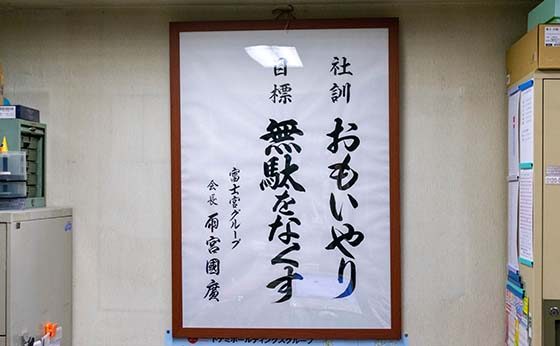 社訓 おもいやり
目標 無駄をなくす
富士宮グループ
会長 雨宮國廣
トナミホールディングスグループ